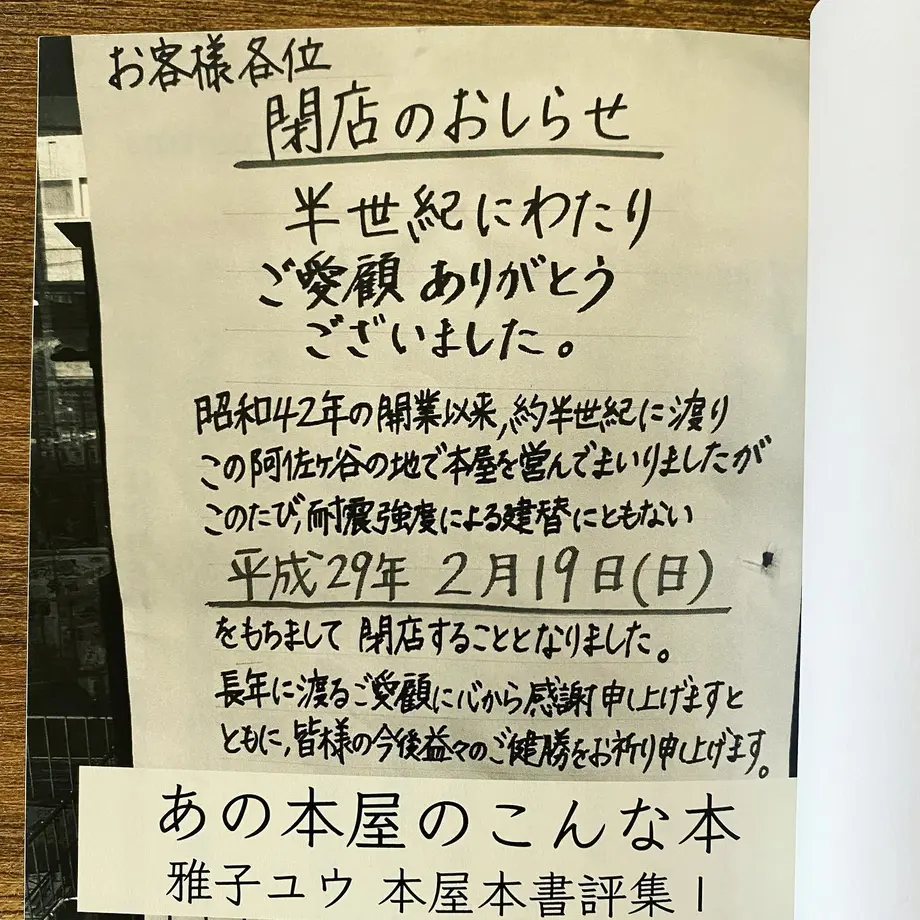 お客様各位
閉店のおしらせ
半世紀にわたり
ご愛顧ありがとう
ございました。
昭和42年の開業以来,約半世紀に渡り
この阿佐ヶ谷の地で本屋を営んでまいりましたが
このたび,耐震強度による建替にともない
平成29年 2月19日(日)
をもちまして 閉店することとなりました。
長年に渡るご愛顧に心から感謝申し上げますと
ともに,皆様の今後益々のご健勝をお祈り申し上げます。
あの本屋のこんな本
雅子ユウ 本屋本書評集Ⅰ